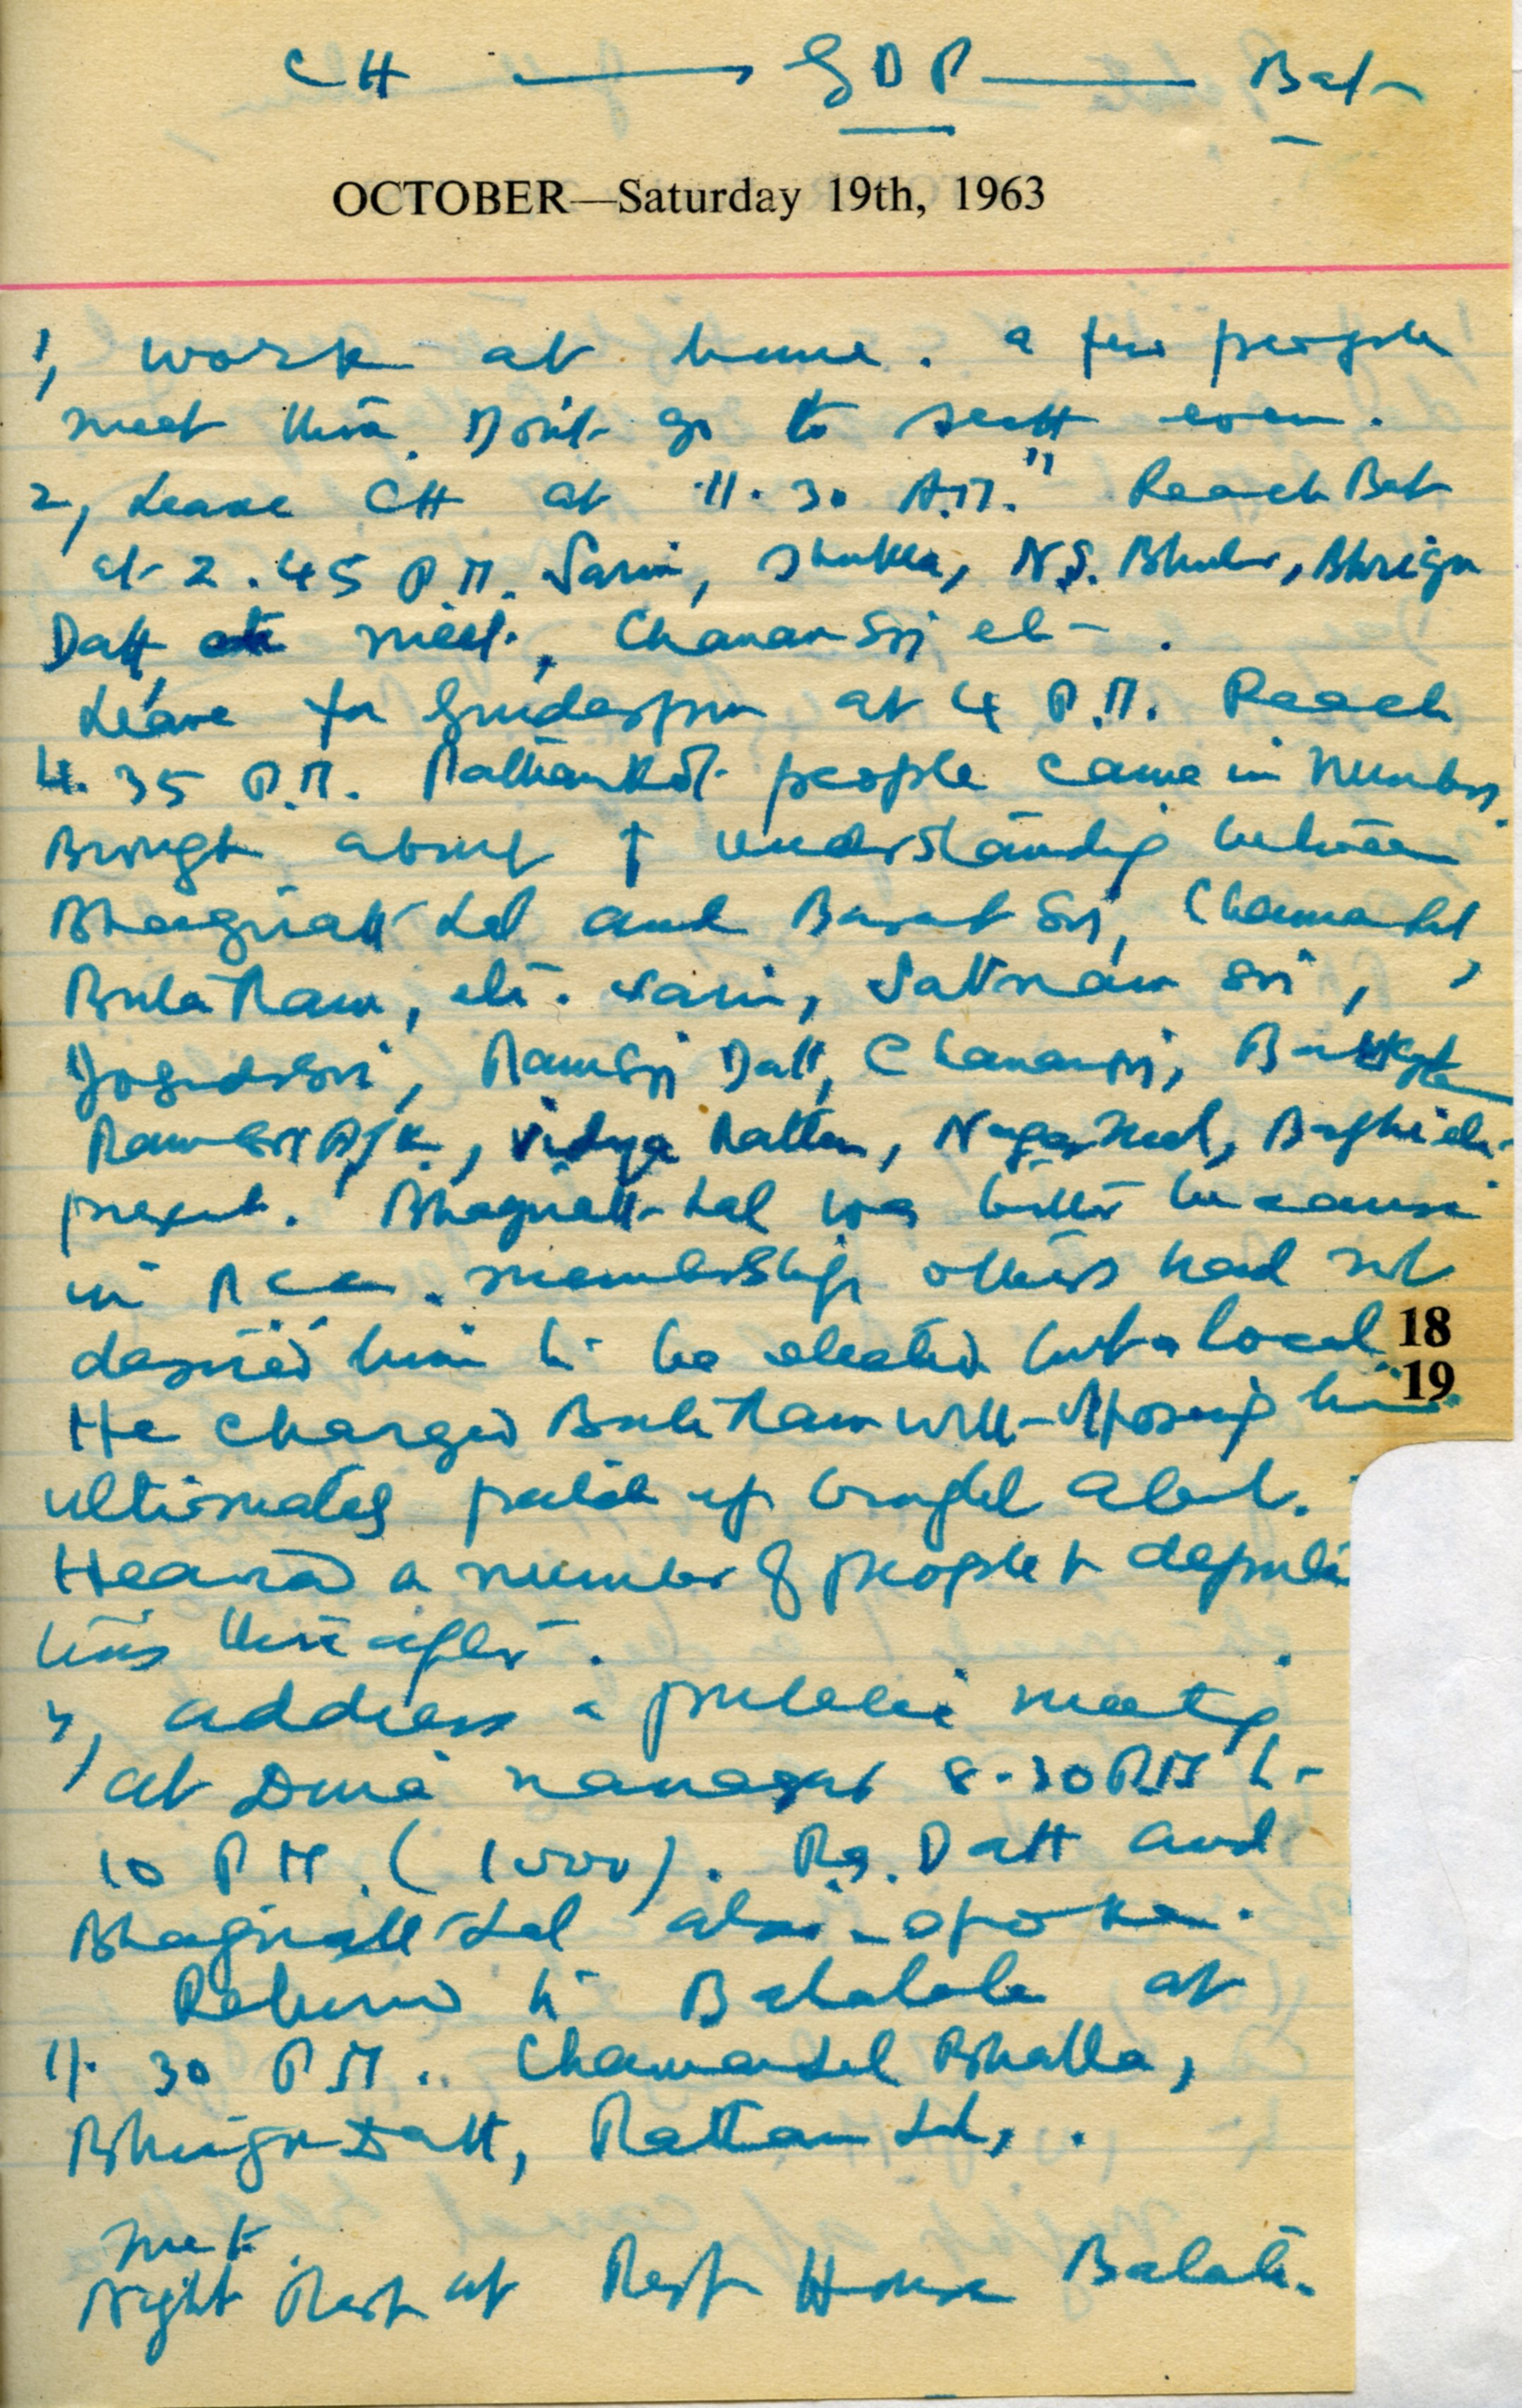 CH → GDP — Bat
OCTOBER—Saturday 19th, 1963
1, work at home. a few people
meet there. Don't go to sectt even.
2, Leave CH at "11.30 A.M." Reach Bat
at 2.45 P.M. Sarin, Shukla, N.S. Bhuler, Bhrigu
Datt etc meet. Chanan Sgj etc.
Leave for Gurdaspur at 4 P.M. Reach
4.35 P.M. Pathankot people came in Numbers.
Brought about ↑ understanding between
Bhagirath Lal and Basant Sgj, Chamanlal,
Bula Ram, etc. Sarin, Satnam Sgj,
Joginder Sgj, Ram Sgj Datt, Chanan Sgj,
Ram Sgj, Vidya Rattan, Baghi etc.
present. Bhagirath Lal was bitter because
in membership others had not
desired him to be elected but a local
He charged Bula Ram with opposing him
ultimately patch up brought about.
Heared a number of people & deputa
tions thereafter.
3, address a public meeting
at Dina nanagar 8-30 PM to
10 P.M. (1000). Rg. Datt and
Bhagirath Lal also spoke.
Returned to Batala at
11.30 P.M.. Chaman Lal Bhalla,
Bhrigu Datt, Rattan Lal,.
met.
Night Rest at Rest House Batala.
18
19